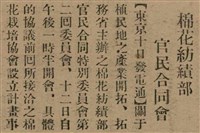 棉花紡績部
官民合同會
【東京十日發電通】關于
植民地之產業開拓、拓
務省主辦之棉花紡績部
官民合同特別委員會第
二回委員會、十二日
午後一時半開會、具體
的協議前回所接洽之棉
花栽培協會設立計畫準